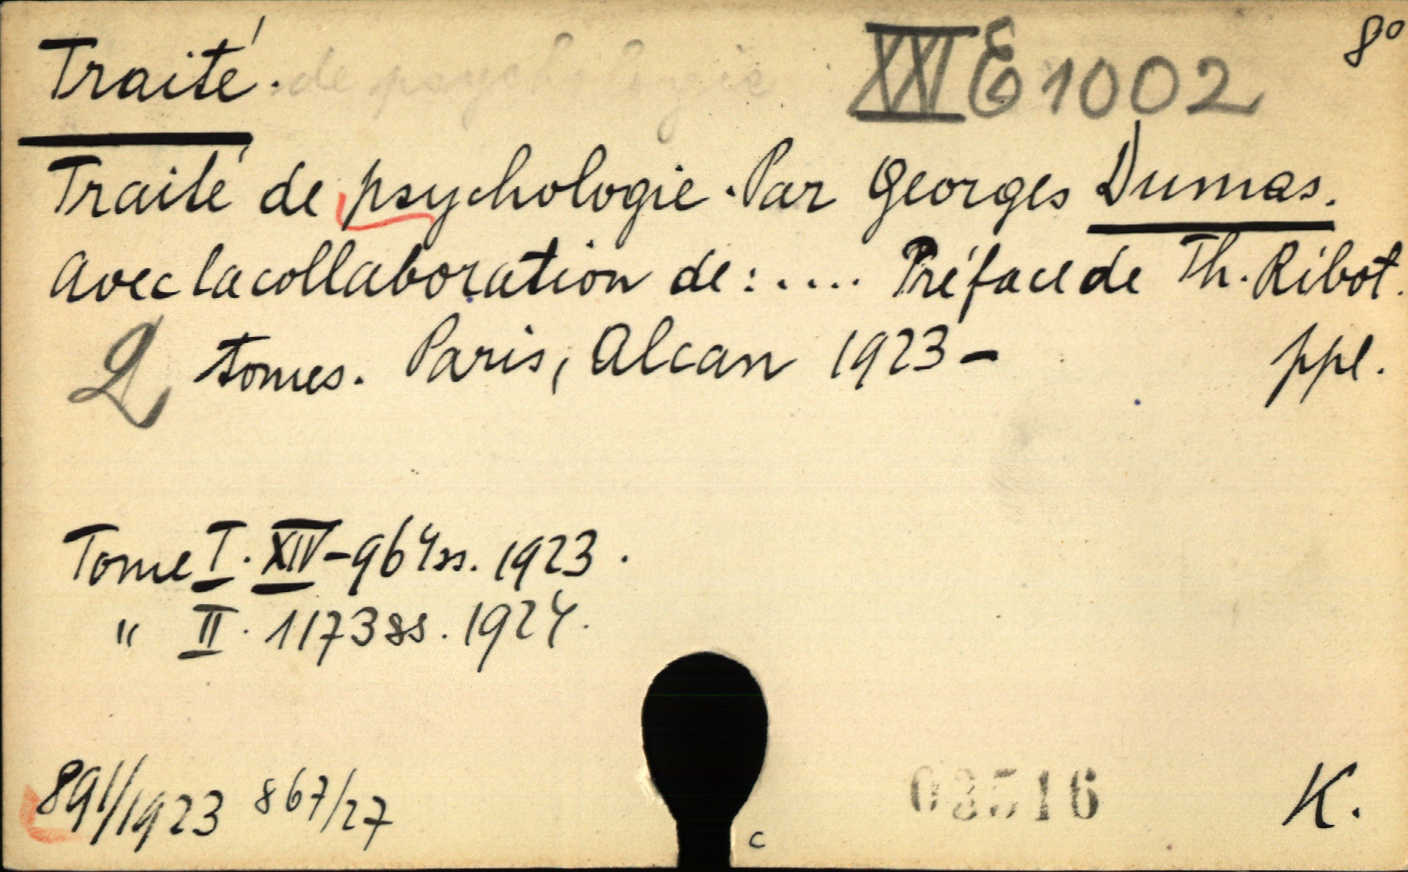 Traité. de psychologie XXI E 1002 8°
Traité de psychologie. Par Georges Dumas.
Avec la collaboration de: .... Préface de Th. Ribot.
2 tomes. Paris, Alcan 1923- ppl.
Tome I. XIV-964 ss. 1923.
" II. 1173 ss. 1924.
891/1923 867/27 03516 K.
c